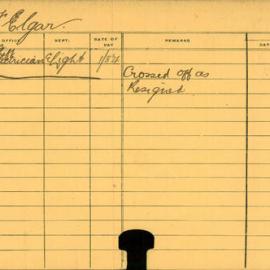 Elgar.
OFFICE. DEPT. DATE OF PAY REMARKS DA
Electrician Elight 1/54 Crossed off as
Resigned